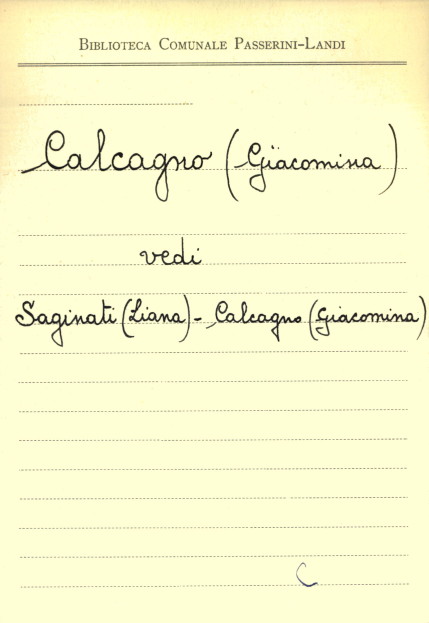 BIBLIOTECA COMUNALE PASSERINI-LANDI
Calcagno (Giacomina)
vedi
Saginati (Liana) - Calcagno (Giacomina)
C